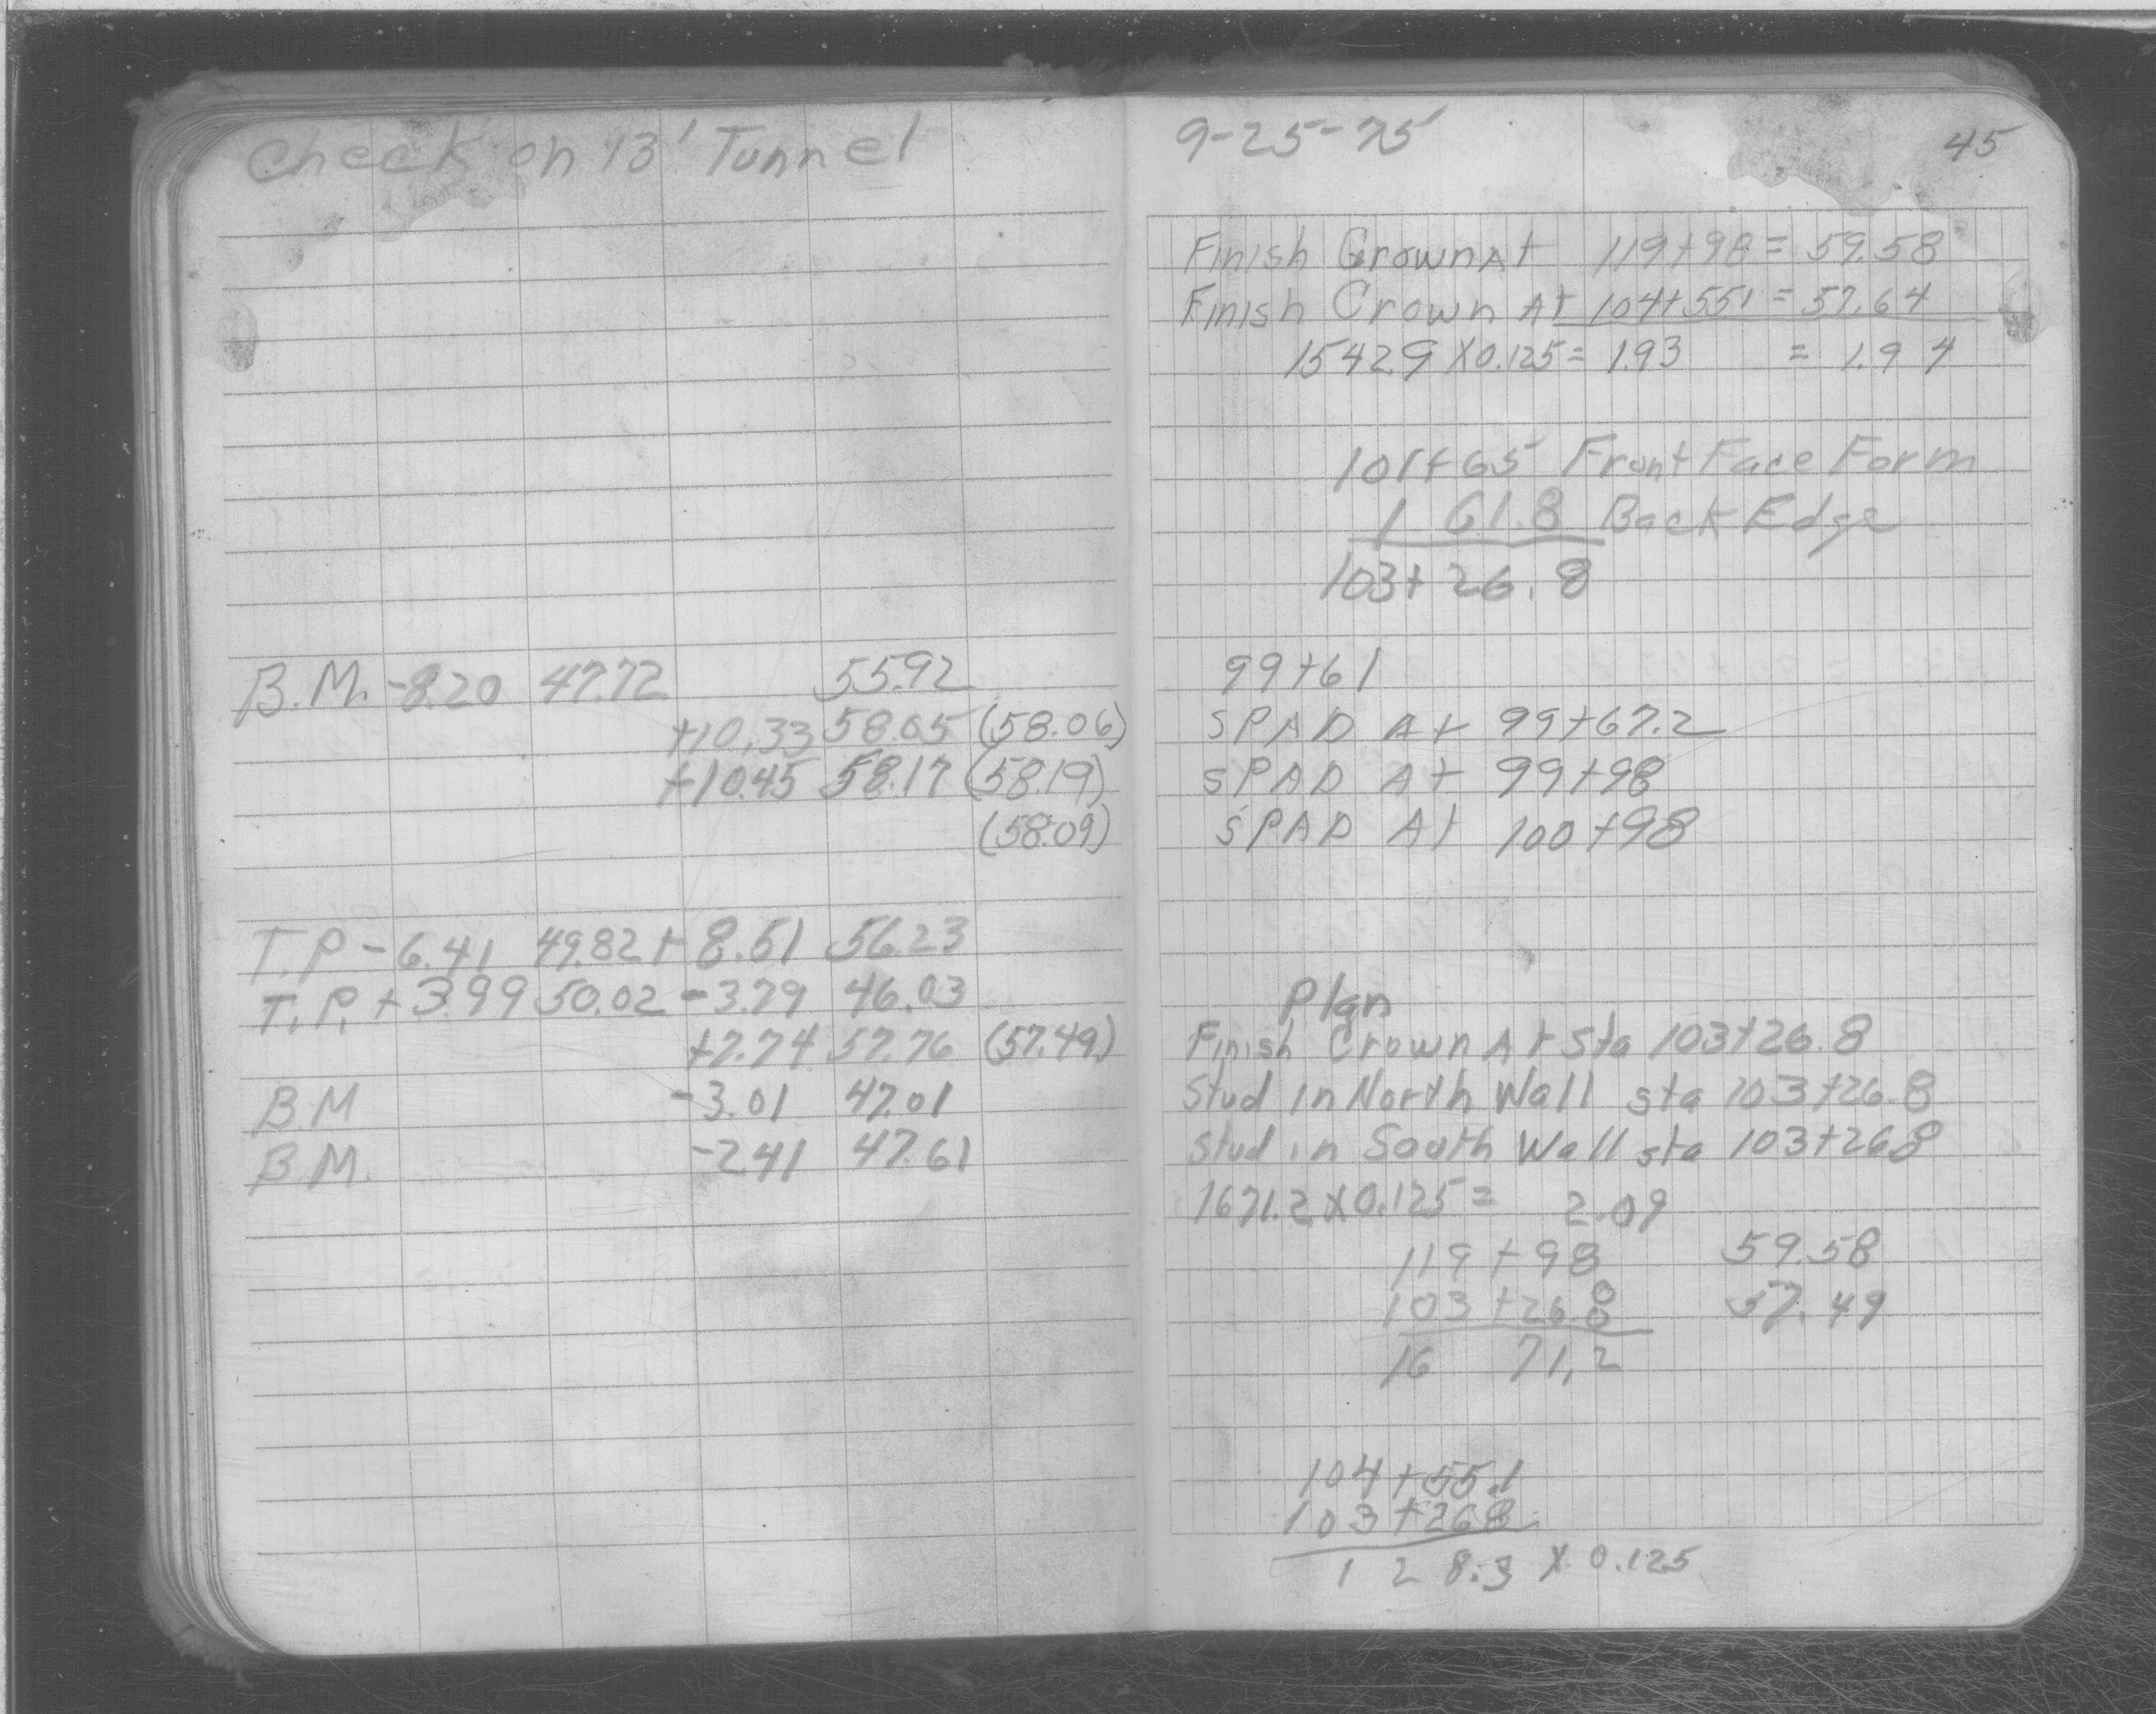 Check on 13' Tunnel
B.M. -8.20 47.72 55.92
+10.33 58.05 (58.06)
+10.45 58.17 (58.19)
(58.09)
T.P. -6.41 49.82 + 8.51 56.23
T.P. + 3.99 50.02 -3.79 46.03
+7.74 57.76 (57.49)
B.M -3.01 47.01
B.M. -2.41 47.61
9-25-75
45
Finish Crown At 119+98 = 59.58
Finish Crown At 104+55.1 = 57.64
1542.9 X 0.125 = 1.93 = 1.94
101+65 Front Face Form
1 61.8 Back Edge
103+26.8
99+61
SPAD At 99+67.2
SPAD At 99+98
SPAD At 100+98
Plan
Finish Crown At Sta 103+26.8
Stud in North Wall sta 103+26.8
Stud in South Wall sta 103+26.8
1671.2 X 0.125 = 2.09
119+98 59.58
103+26.8 57.49
16 71.2
104+55.1
103+26.8
1 28.3 X 0.125